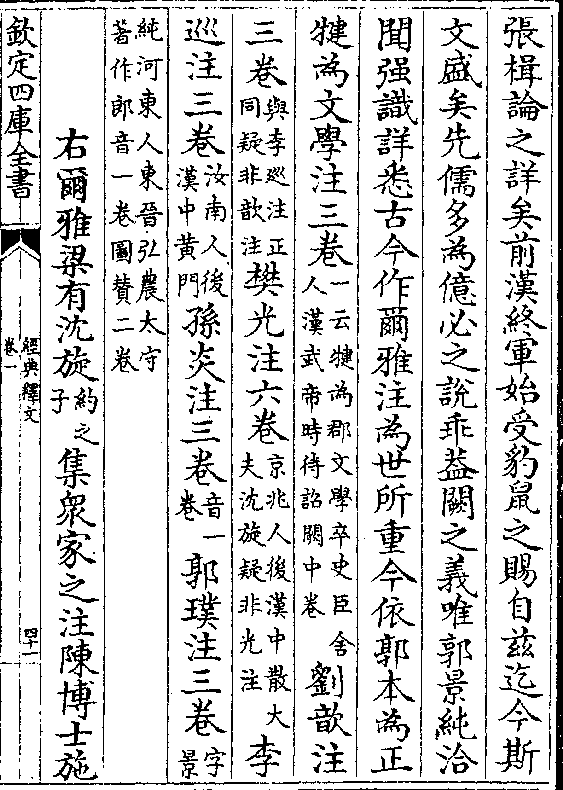 張楫論之詳矣前漢終軍始受豹鼠之賜自兹迄今斯
文盛矣先儒多為億必之說乖葢闕之義唯郭景純洽
聞强識詳悉古今作爾雅注為世所重今依郭本為正
犍為文學注三卷一云犍為郡文學卒史臣舍人漢武帝時待詔闕中卷劉歆注
三卷與李廵注正同疑非歆注樊光注六卷京兆人後漢中散大夫沈旋疑非光注李
廵注三卷汝南人後漢中黄門孫炎注三卷音一卷郭璞注三卷字景
純河東人東晉弘農太守著作郎音一卷圖賛二卷
右爾雅梁有沈旋約之子集衆家之注陳博士施
欽定四庫全書
經典釋文
卷一
四十一